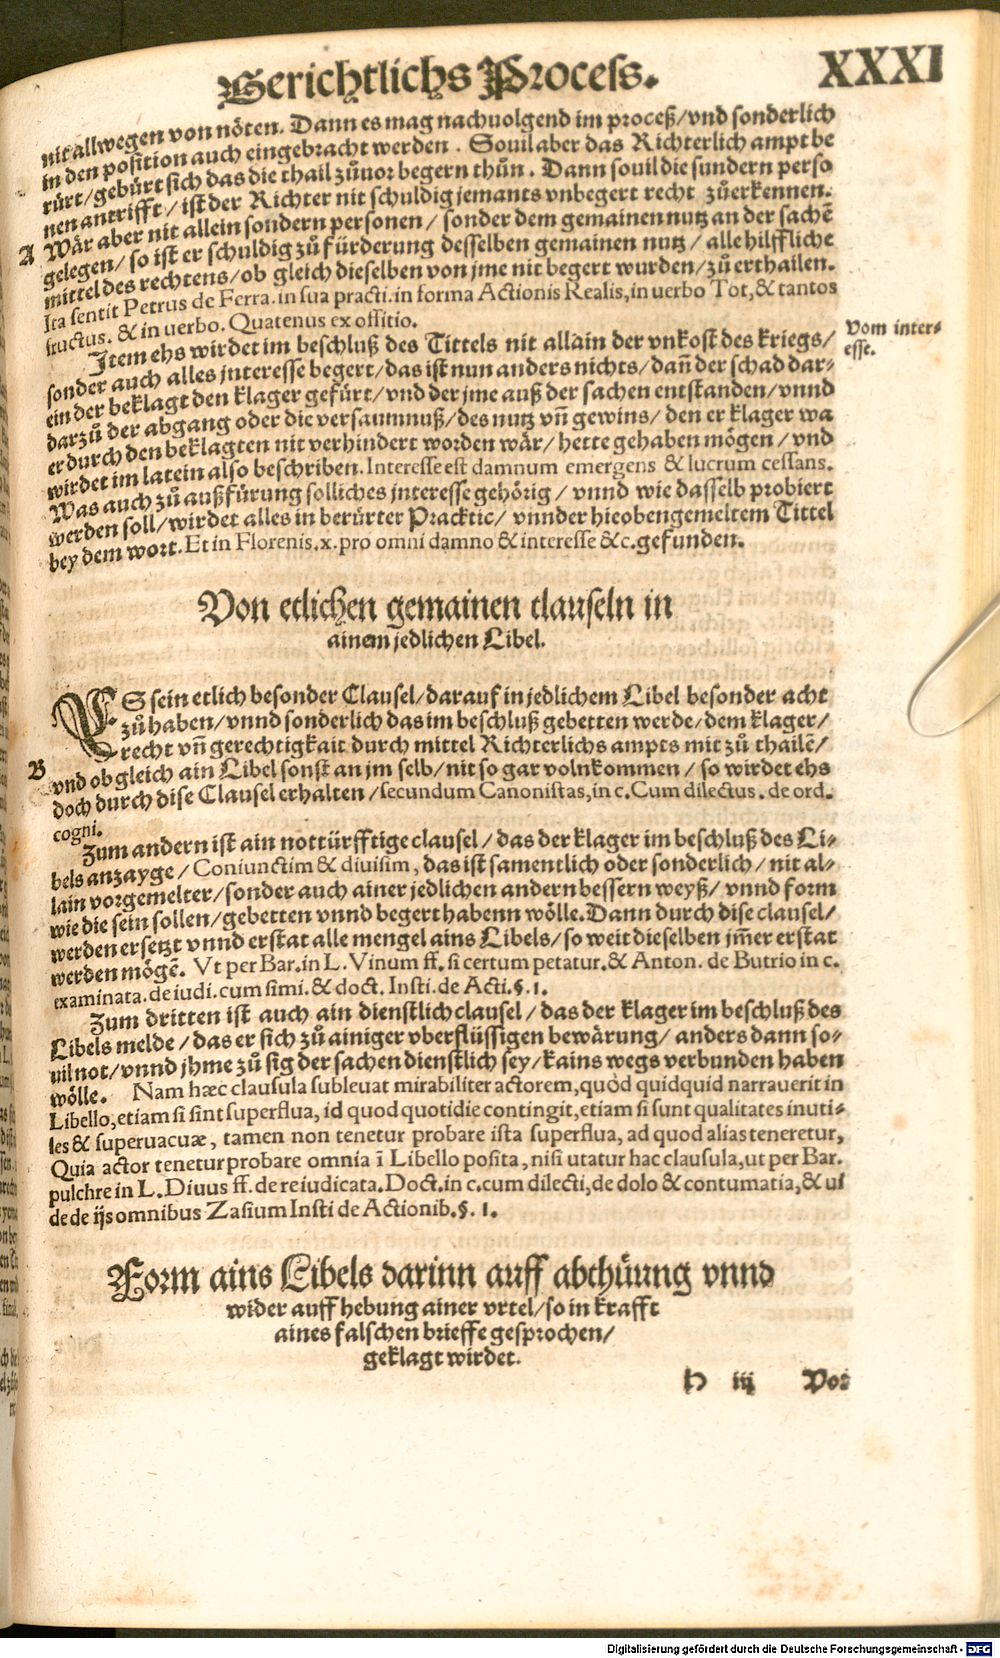 Gerichtlichs Process.
XXXI
nit allwegen von nöten. Dann es mag nachuolgend im proceß/vnd sonderlich
in den position auch eingebracht werden. Souil aber das Richterlich ampt be
rürt/gebürt sich das die thail zůuor begern thůn. Dann souil die sundern perso
nen antrifft/ist der Richter nit schuldig jemants vnbegert recht zůerkennen.
A Wär aber nit allein sondern personen/sonder dem gemainen nutz an der sachē
gelegen/so ist er schuldig zů fürderung desselben gemainen nutz/alle hilffliche
mittel des rechtens/ob gleich dieselben von jme nit begert wurden/zů erthailen.
Ita sentit Petrus de Ferra. in sua practi. in forma Actionis Realis, in verbo Tot, & tantos
fructus. & in verbo. Quatenus ex offitio.
Vom inter-
esse.
Item ehs wirdet im beschluß des Tittels nit allain der vnkost des kriegs/
sonder auch alles jnteresse begert/das ist nun anders nichts/dañ der schad dar-
ein der beklagt den klager gefürt/vnd der jme auß der sachen entstanden/vnnd
darzů der abgang oder die versaumnuß/des nutz vñ gewins/den er klager wa
er durch den beklagten nit verhindert worden wär/hette gehaben mögen/vnd
wirdet im latein also beschriben. Interesse est damnum emergens & lucrum cessans.
Was auch zů außfürung solliches jnteresse gehörig/vnnd wie dasselb probiert
werden soll/wirdet alles in berürter Pracktic/vnnder hieobengemeltem Tittel
bey dem wort. Et in Florenis. x. pro omni damno & interesse &c. gefunden.
Von etlichen gemainen clauseln in
ainem jedlichen Libel.
ES sein etlich besonder Clausel/darauf in jedlichem Libel besonder acht
zů haben/vnnd sonderlich das im beschluß gebetten werde/dem klager/
recht vñ gerechtigkait durch mittel Richterlichs ampts mit zů thailē/
B vnd ob gleich ain Libel sonst an jm selb/nit so gar volnkommen/so wirdet ehs
doch durch dise Clausel erhalten/secundum Canonistas, in c. Cum dilectus. de ord.
cogni.
Zum andern ist ain nottürfftige clausel/das der klager im beschluß des Li-
bels anzayge/Coniunctim & diuisim, das ist samentlich oder sonderlich/nit al-
lain vorgemelter/sonder auch ainer jedlichen andern bessern weyß/vnnd form
wie die sein sollen/gebetten vnnd begert habenn wölle. Dann durch dise clausel/
werden ersetzt vnnd erstat alle mengel ains Libels/so weit dieselben jm̄er erstat
werden mögē. Vt per Bar. in L. Vinum ff. si certum petatur. & Anton. de Butrio in c.
examinata. de iudi. cum simi. & doct. Insti. de Acti. §. 1.
Zum dritten ist auch ain dienstlich clausel/das der klager im beschluß des
Libels melde/das er sich zů ainiger vberflüssigen bewärung/anders dann so-
uil not/vnnd jhme zů sig der sachen dienstlich sey/kains wegs verbunden haben
wölle. Nam hæc clausula subleuat mirabiliter actorem, quòd quidquid narrauerit in
Libello, etiam si sint superflua, id quod quotidie contingit, etiam si sunt qualitates inuti-
les & superuacuæ, tamen non tenetur probare ista superflua, ad quod alias teneretur,
Quia actor tenetur probare omnia ī Libello posita, nisi utatur hac clausula, ut per Bar.
pulchre in L. Diuus ff. de re iudicata. Doct. in c. cum dilecti, de dolo & contumatia, & ui
de de ijs omnibus Zasium Insti de Actionib. §. 1.
Form ains Libels darinn auff abthüung vnnd
wider auff hebung ainer vrtel/so in krafft
aines falschen brieffe gesprochen/
geklagt wirdet.
H iij Vor
Digitalisierung gefördert durch die Deutsche Forschungsgemeinschaft - DFG